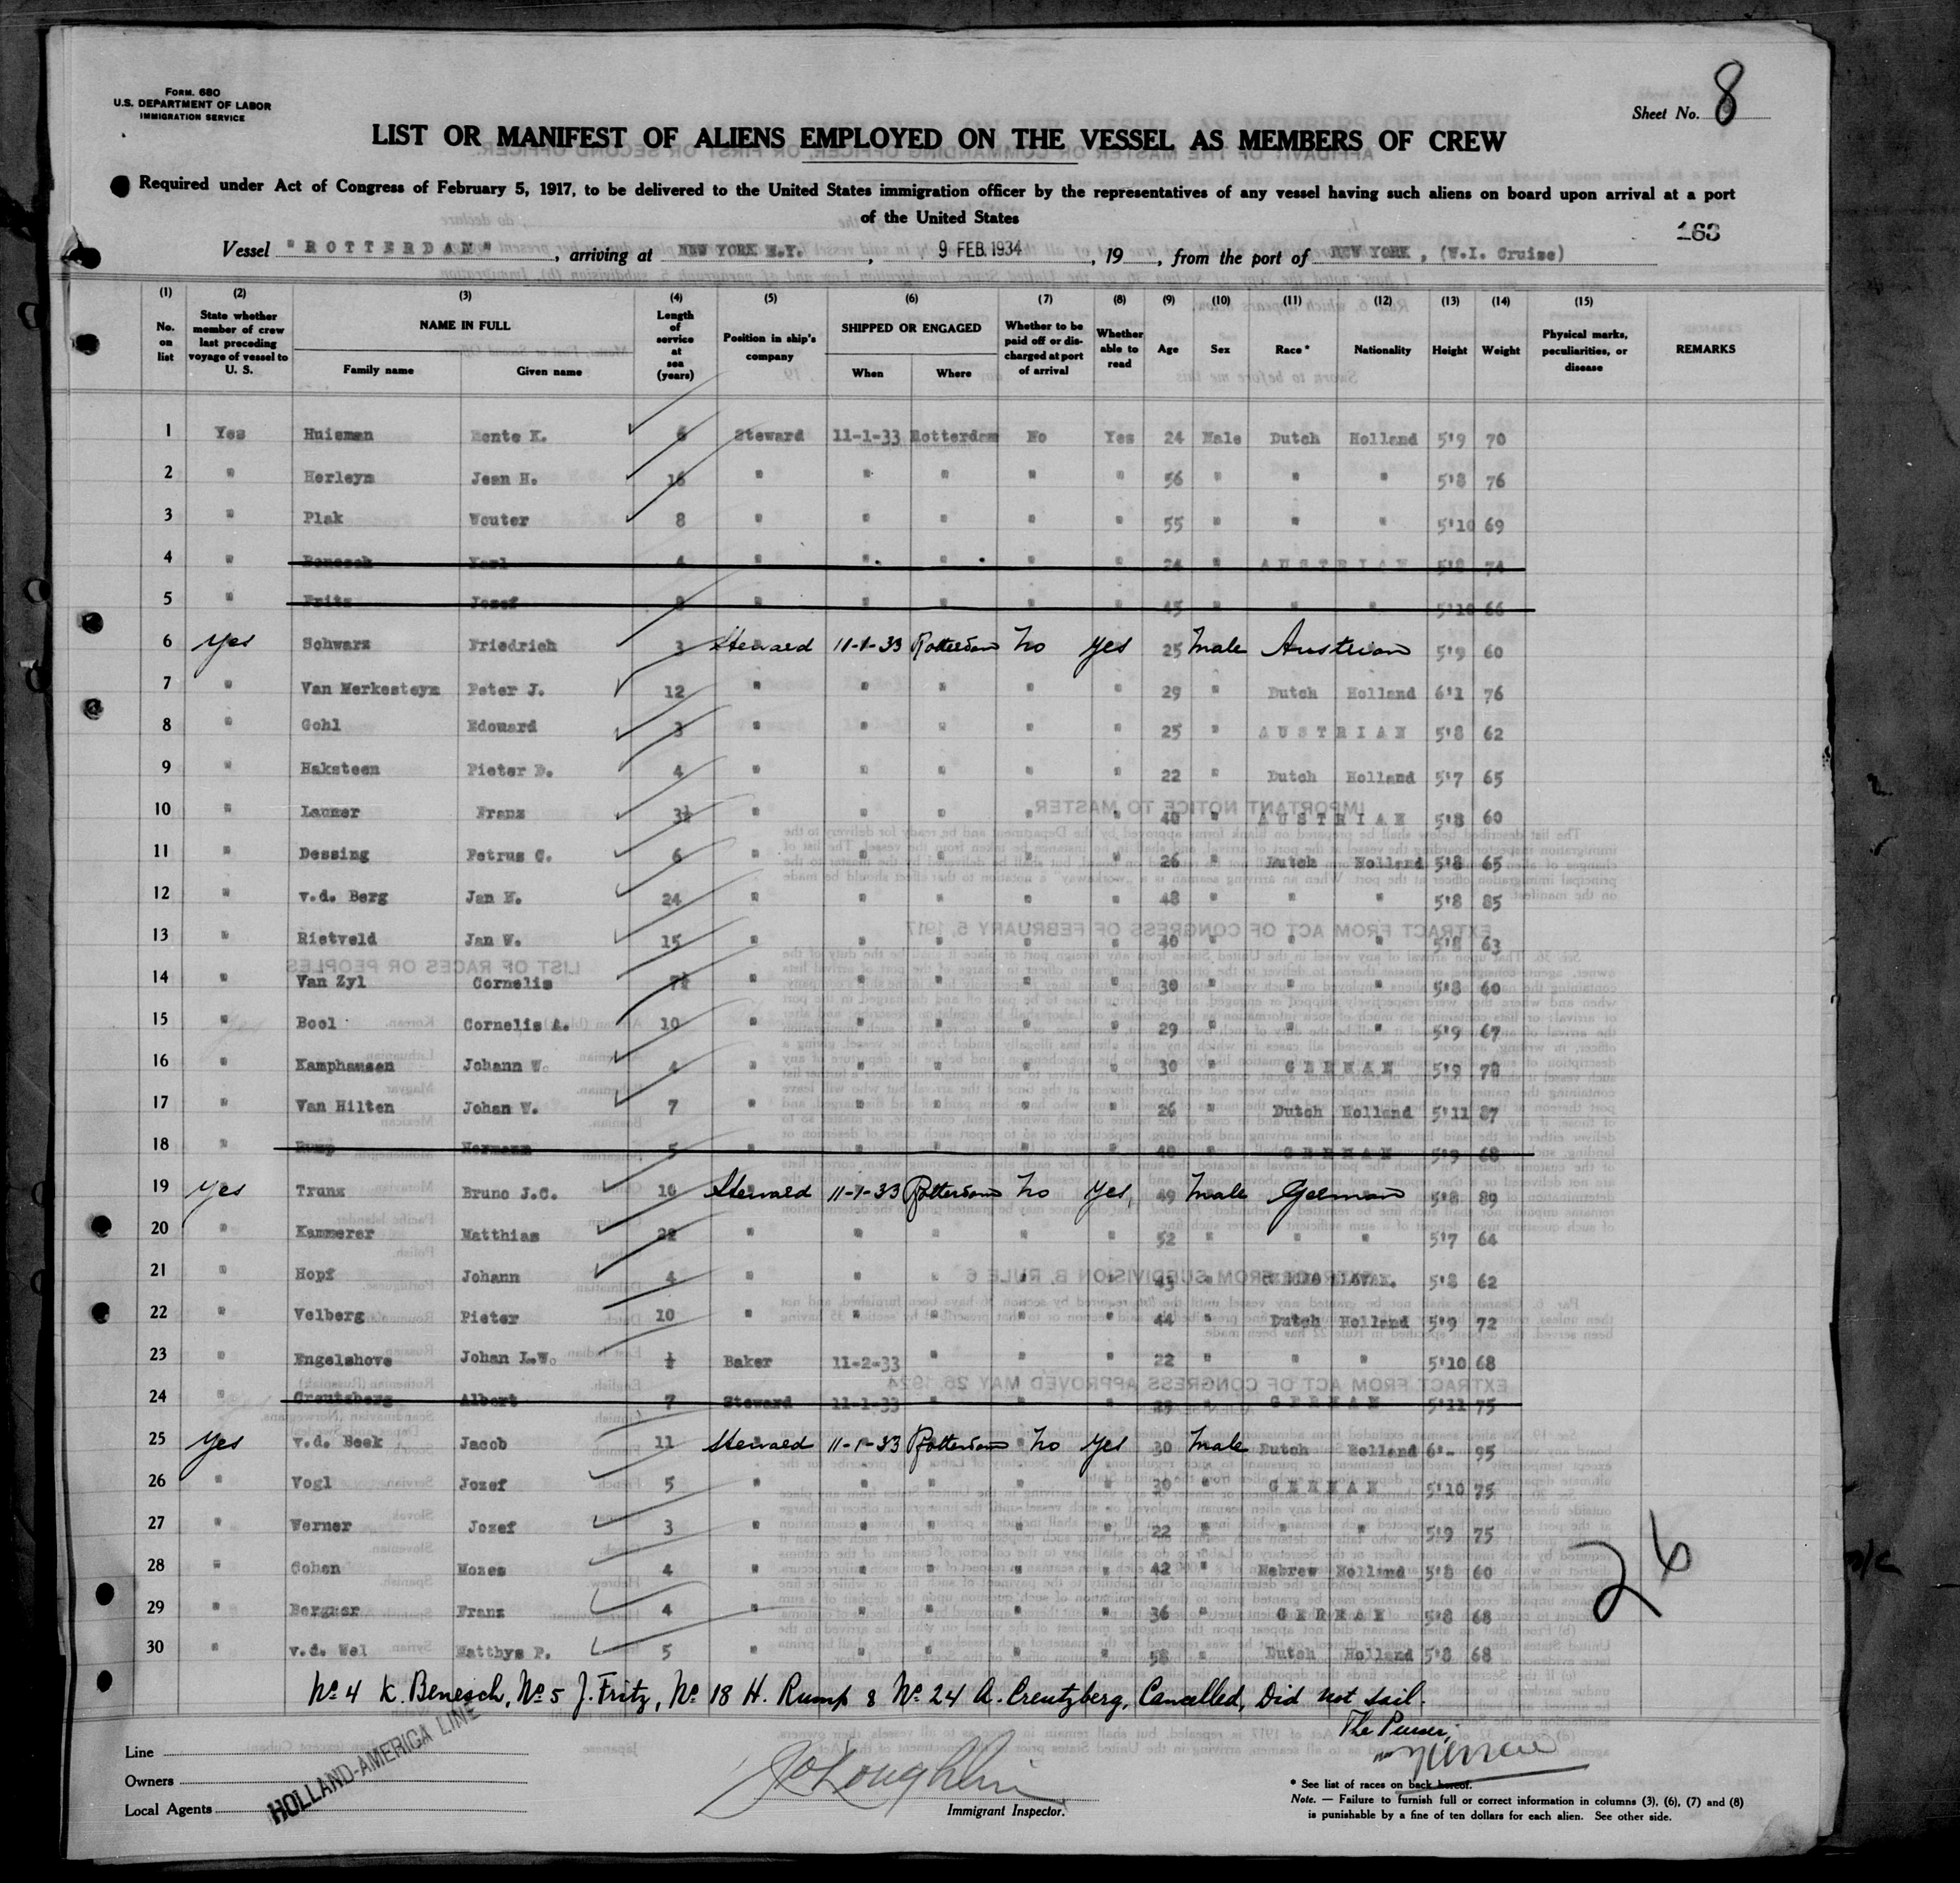 FORM. 680
U.S. DEPARTMENT OF LABOR
IMMIGRATION SERVICE
Sheet No. 8
LIST OR MANIFEST OF ALIENS EMPLOYED ON THE VESSEL AS MEMBERS OF CREW
Required under Act of Congress of February 5, 1917, to be delivered to the United States immigration officer by the representatives of any vessel having such aliens on board upon arrival at a port
of the United States
163
Vessel "ROTTERDAM", arriving at NEW YORK N.Y., 9 FEB. 1934, 19 , from the port of NEW YORK, (W.I. Cruise)
(1) No. on list (2) State whether member of crew last preceding voyage of vessel to U. S. (3) NAME IN FULL Family name Given name (4) Length of service at sea (years) (5) Position in ship's company (6) SHIPPED OR ENGAGED When Where (7) Whether to be paid off or discharged at port of arrival (8) Whether able to read (9) Age (10) Sex (11) Race* (12) Nationality (13) Height (14) Weight (15) Physical marks, peculiarities, or disease REMARKS
1 Yes Huisman Mente K. 6 Steward 11-1-33 Rotterdam No Yes 24 Male Dutch Holland 5'9 70
2 " Herleyn Jean H. 16 " " " " " 56 " " " 5'8 76
3 " Plak Wouter 8 " " " " " 55 " " " 5'10 69
4 " Benesch Karl 4 " " " " " 24 " AUSTRIAN 5'8 74
5 " Fritz Josef 8 " " " " " 45 " " " 5'10 66
6 Yes Schwarz Friedrich 3 Steward 11-1-33 Rotterdam No Yes 25 Male Austrian 5'9 60
7 " Van Merkesteyn Peter J. 12 " " " " " 29 " Dutch Holland 6'1 76
8 " Gohl Edouard 3 " " " " " 25 " AUSTRIAN 5'8 62
9 " Haksteen Pieter D. 4 " " " " " 22 " Dutch Holland 5'7 65
10 " Launer Franz 3½ " " " " " 40 " AUSTRIAN 5'8 60
11 " Dessing Petrus C. 6 " " " " " 26 " Dutch Holland 5'8 65
12 " v.d. Berg Jan H. 24 " " " " " 48 " " " 5'8 85
13 " Rietveld Jan W. 15 " " " " " 40 " " " 5'8 63
14 " Van Zyl Cornelis 7½ " " " " " 30 " " " 5'8 60
15 " Bool Cornelis A. 10 " " " " " 29 " " " 5'9 67
16 " Kamphausen Johann W. 4 " " " " " 30 " GERMAN 5'9 78
17 " Van Hilten Johan W. 7 " " " " " 26 " Dutch Holland 5'11 87
18 " Rump Hermann 5 " " " " " 40 " GERMAN 5'9 68
19 Yes Trunz Bruno J.C. 10 Steward 11-1-33 Rotterdam No Yes 49 Male German 5'8 89
20 " Kammerer Matthias 22 " " " " " 52 " " " 5'7 64
21 " Hopf Johann 4 " " " " " 43 " 5'8 62
22 " Velberg Pieter 10 " " " " " 44 " Dutch Holland 5'9 72
23 " Engelshove Johan L.W. ½ Baker 11-2-33 " " " 22 " " " 5'10 68
24 " Creutzberg Albert 7 Steward 11-1-33 " " " 29 " GERMAN 5'11 75
25 Yes v.d. Beek Jacob 11 Steward 11-1-33 Rotterdam No Yes 30 Male Dutch Holland 6'- 95
26 " Vogl Jozef 5 " " " " " 30 " GERMAN 5'10 75
27 " Werner Jozef 3 " " " " " 22 " " " 5'9 75
28 " Cohen Mozes 4 " " " " " 42 " Hebrew Holland 5'8 60
29 " Bergner Franz 4 " " " " " 36 " GERMAN 5'8 68
30 " v.d. Wel Matthys P. 5 " " " " " 58 " Dutch Holland 5'8 68
26
No. 4 K. Benesch, No. 5 J. Fritz, No. 18 H. Rump & No. 24 A. Creutzberg, Cancelled, Did not sail.
The Purser,
Line
Owners
Local Agents
HOLLAND-AMERICA LINE
JO'Loughlin
Immigrant Inspector.
* See list of races on back hereof.
Note. — Failure to furnish full or correct information in columns (3), (6), (7) and (8)
is punishable by a fine of ten dollars for each alien. See other side.